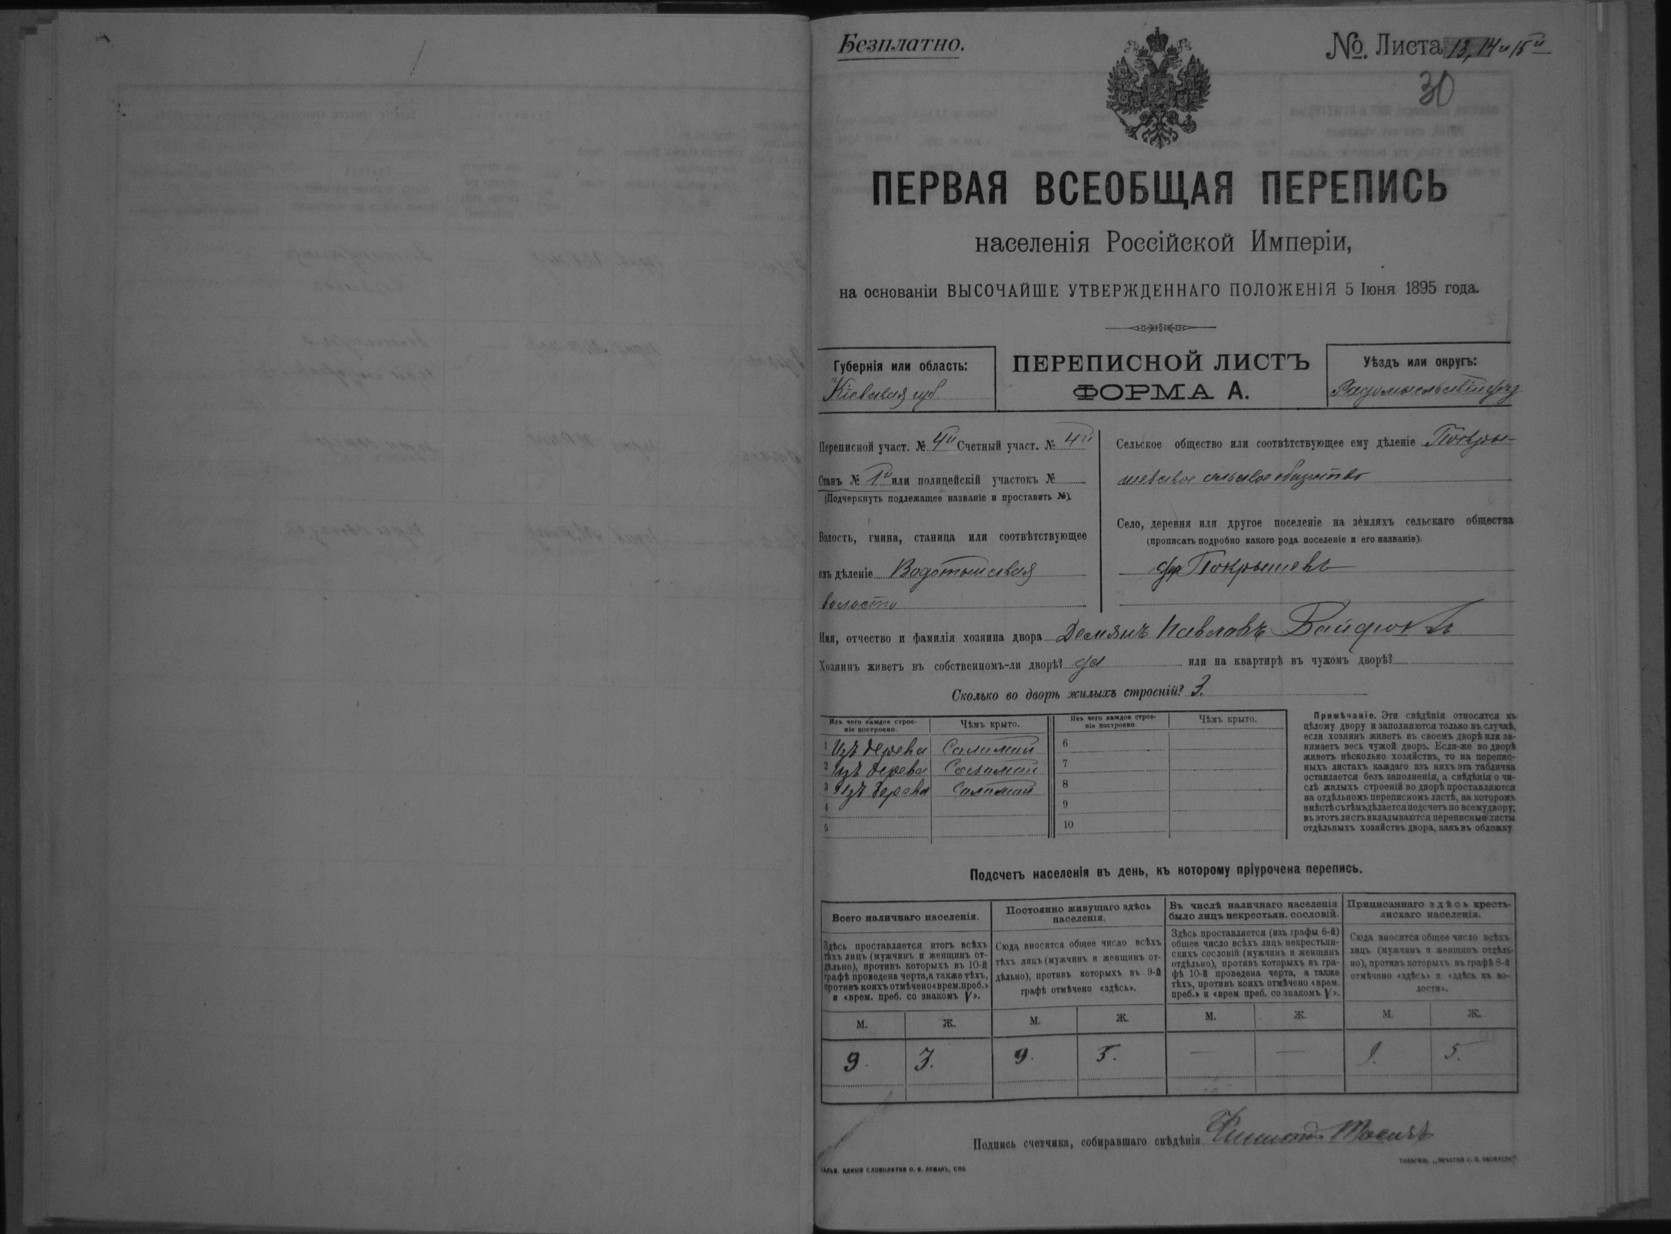 Безплатно.
№ Листа 13, 14 и 15й
30
ПЕРВАЯ ВСЕОБЩАЯ ПЕРЕПИСЬ
населенія Россійской Имперіи,
на основаніи ВЫСОЧАЙШЕ УТВЕРЖДЕННАГО ПОЛОЖЕНІЯ 5 Іюня 1895 года.
Губернія или область:
Кіевская губ.
ПЕРЕПИСНОЙ ЛИСТЪ
ФОРМА А.
Уѣздъ или округъ:
Радомысльскій уѣзд
Переписной участ. № 4й Счетный участ. № 4й
Станъ № 1й или полицейскій участокъ №
(Подчеркнуть подлежащее названіе и проставить №).
Волость, гмина, станица или соотвѣтствующее
имъ дѣленіе Водотыевская
волость
Сельское общество или соотвѣтствующее ему дѣленіе Покры-
шевское сельское общество
Село, деревня или другое поселеніе на земляхъ сельскаго общества
(прописать подробно какого рода поселеніе и его названіе).
дер Покрышевъ
Имя, отчество и фамилія хозяина двора Демянъ Павловъ
Хозяинъ живетъ въ собственномъ-ли дворѣ? да или на квартирѣ въ чужомъ дворѣ?
Сколько во дворѣ жилыхъ строеній? 3.
Изъ чего каждое строе-
ніе построено.
Чѣмъ крыто.
Изъ чего каждое строе-
ніе построено.
Чѣмъ крыто.
1 Изъ дерева Соломой
2 Изъ дерева Соломой
3 Изъ дерева Соломой
4
5
6
7
8
9
10
Примѣчаніе. Эти свѣдѣнія относятся къ
цѣлому двору и заполняются только въ случаѣ,
если хозяинъ живетъ въ своемъ дворѣ или за-
нимаетъ весь чужой дворъ. Если-же во дворѣ
живетъ нѣсколько хозяйствъ, то на перепис-
ныхъ листахъ каждаго изъ нихъ эта табличка
оставляется безъ заполненія, а свѣдѣнія о чи-
слѣ жилыхъ строеній во дворѣ проставляются
на отдѣльномъ переписномъ листѣ, на которомъ
вмѣстѣ съ тѣмъ дѣлается подсчетъ по всему двору;
въ этотъ листъ вкладываются переписные листы
отдѣльныхъ хозяйствъ двора, какъ въ обложку
Подсчетъ населенія въ день, къ которому пріурочена перепись.
Всего наличнаго населенія.
Здѣсь проставляется итогъ всѣхъ
тѣхъ лицъ (мужчинъ и женщинъ от-
дѣльно), противъ которыхъ въ 10-й
графѣ проведена черта, а также тѣхъ,
противъ коихъ отмѣчено «врем. преб.»
и «врем. преб. со знакомъ V».
Постоянно живущаго здѣсь
населенія.
Сюда вносится общее число всѣхъ
тѣхъ лицъ (мужчинъ и женщинъ от-
дѣльно), противъ которыхъ въ 9-й
графѣ отмѣчено «здѣсь».
Въ числѣ наличнаго населенія
было лицъ некрестьян. сословій.
Здѣсь проставляется (изъ графы 6-й)
общее число всѣхъ лицъ некрестьян-
скихъ сословій (мужчинъ и женщинъ
отдѣльно), противъ которыхъ въ гра-
фѣ 10-й проведена черта, а также
тѣхъ, противъ коихъ отмѣчено «врем.
преб.» и «врем преб. со знакомъ V».
Приписаннаго здѣсь кресть-
янскаго населенія.
Сюда вносится общее число всѣхъ
лицъ (мужчинъ и женщинъ отдѣль-
но), противъ которыхъ въ графѣ 8-й
отмѣчено «здѣсь» и «здѣсь въ во-
лости».
М. Ж. М. Ж. М. Ж. М. Ж.
9. 9. — — 5.
Подпись счетчика, собиравшаго свѣдѣнія